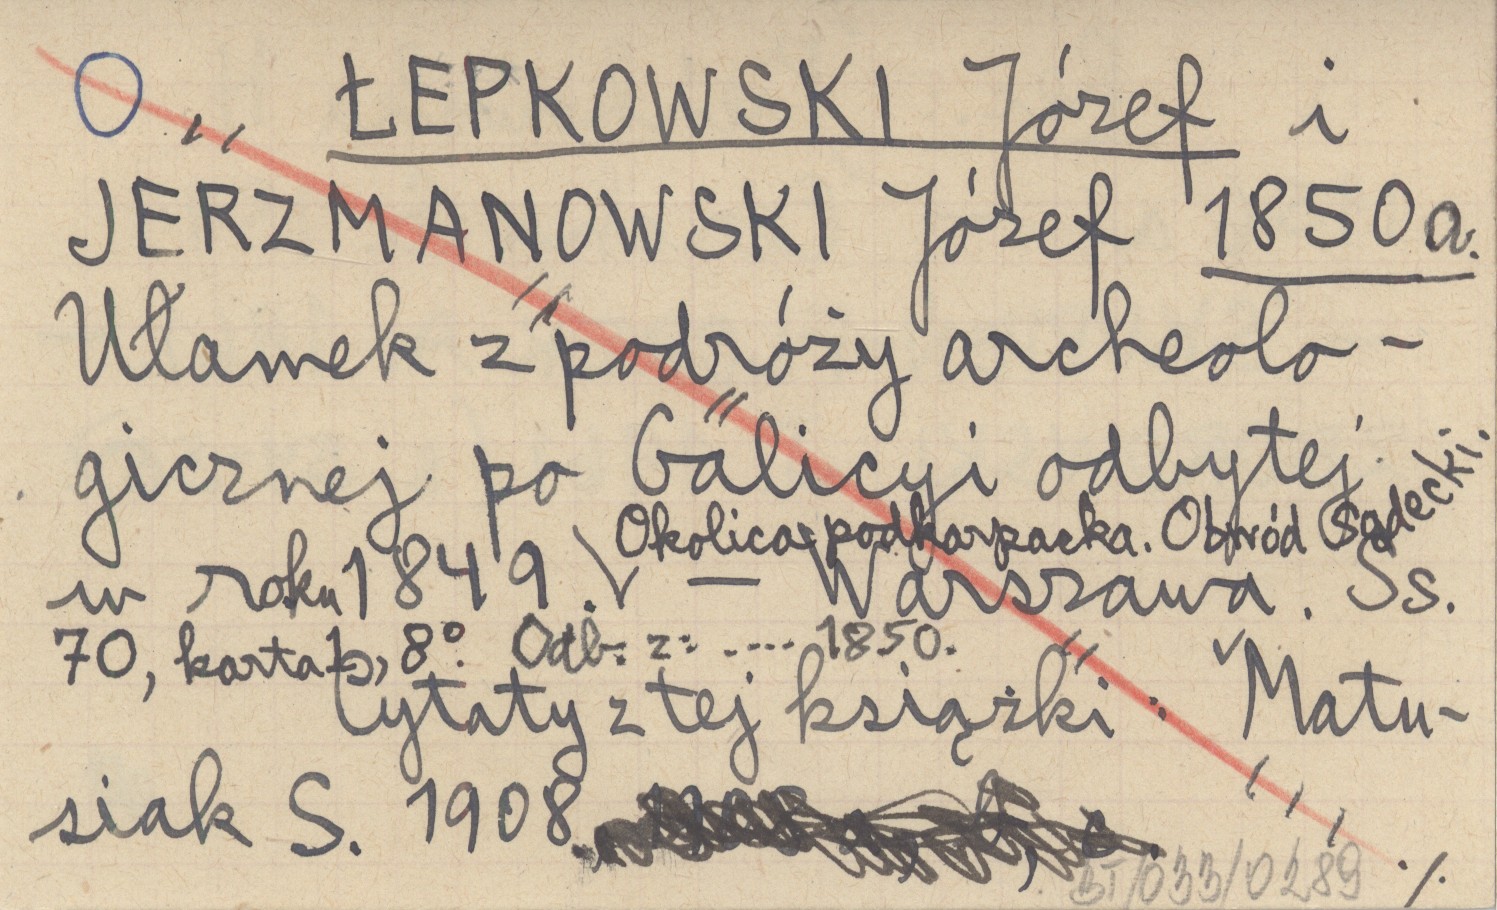 O ŁEPKOWSKI Józef i
JERZMANOWSKI Józef 1850a.
Ułamek z podróży archeolo-
gicznej po Galicyi odbytej
w roku 1849. Okolica podkarpacka. Obwód Sądecki.
— Warszawa. Ss.
70, karta 1, 8°. Odb. z: .... 1850.
Cytaty z tej książki: Matu-
siak S. 1908.
BT/033/0289 ./.